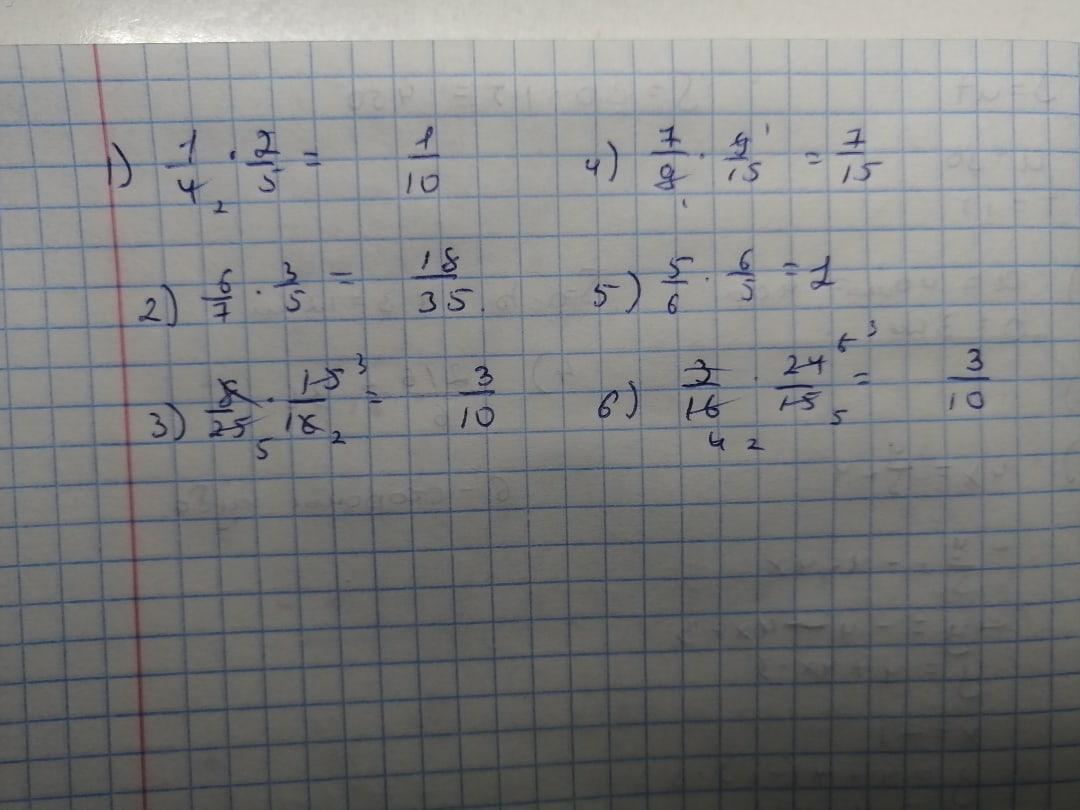 1) 1/4 2 · 2/5 = 1/10
2) 6/7 · 3/5 = 18/35.
3) 8/25 5 · 15 3/16 2 = 3/10
4) 7/9 1 · 9 1/15 = 7/15
5) 5/6 · 6/5 = 1
6) 3/16 4 2 · 24 6 3/15 5 = 3/10